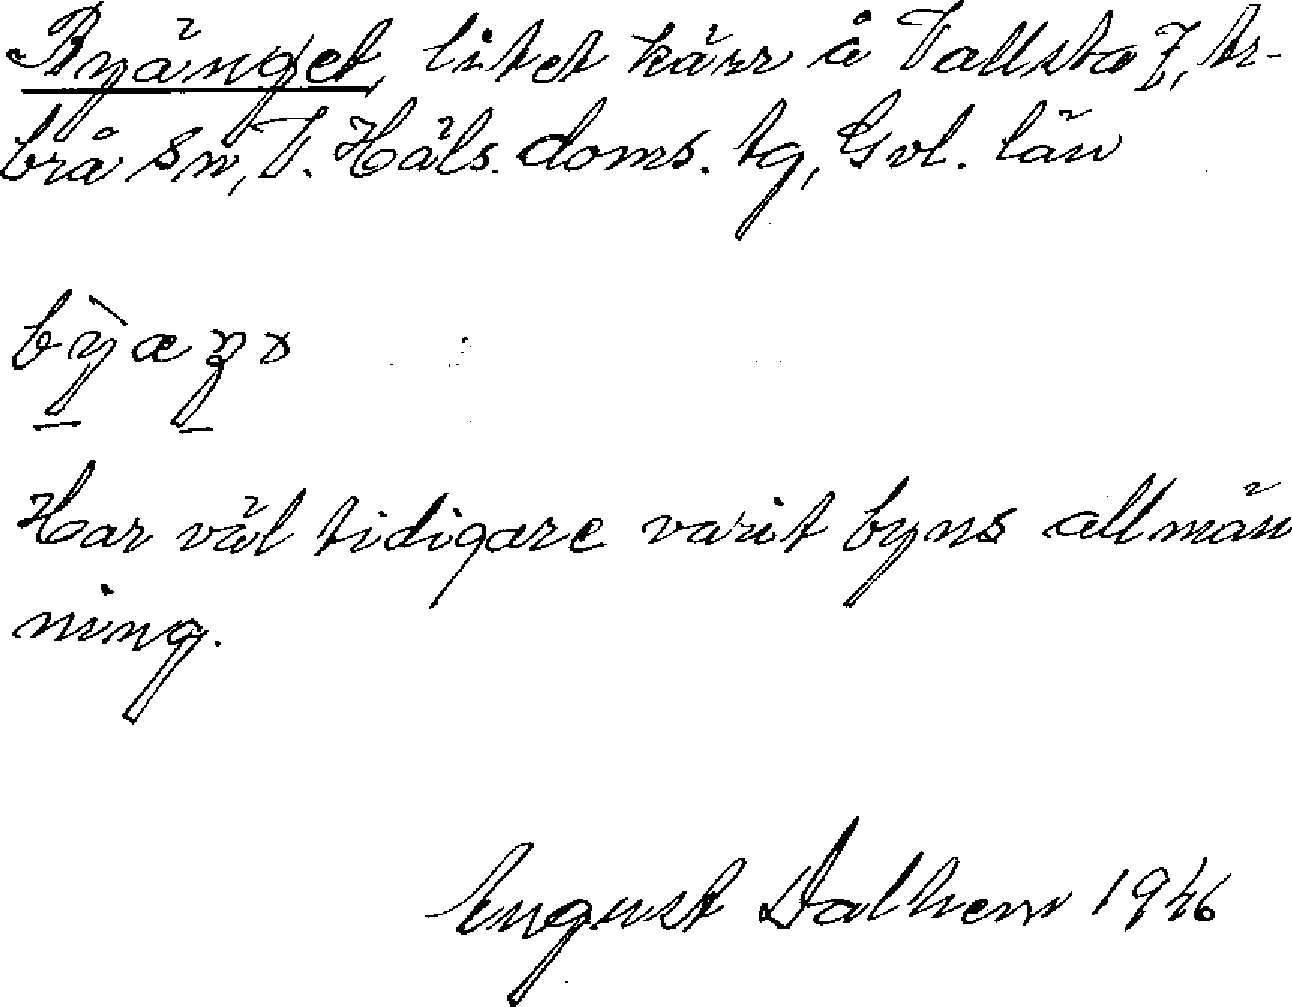 Byänget, litet kärr å Vallsta I, Ar-
brå sn, V. Häls. doms. tg, Gvl. län
býæŋə
Har väl tidigare varit byns allmän
ning.
August Dalhem 1946